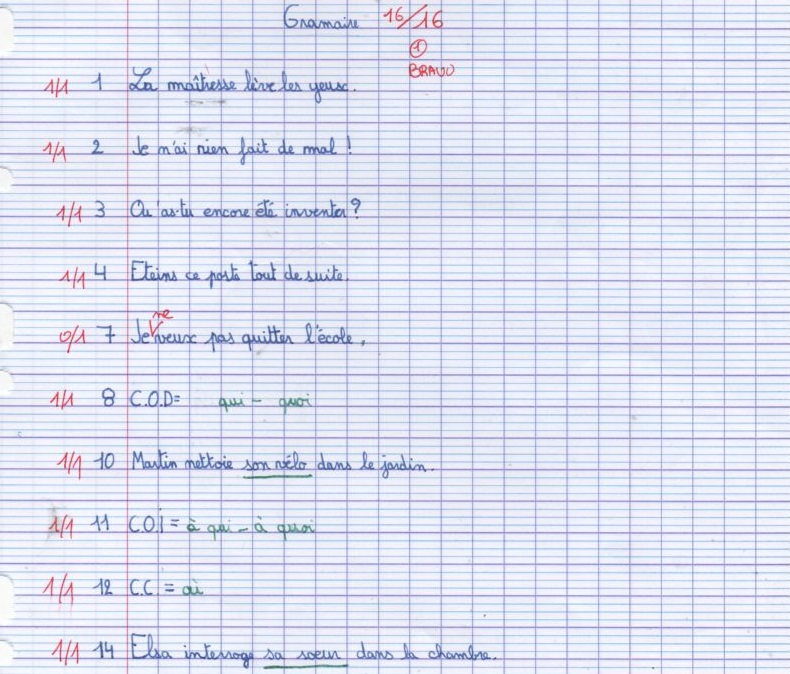 Gramaire 16/16
①
BRAVO
1/1 1 La maîtresse lève les yeux.
1/1 2 Je n'ai rien fait de mal !
1/1 3 Qu'as-tu encore été inventer ?
1/1 4 Eteins ce poste tout de suite.
ne
0/1 7 Je veux pas quitter l'école.
1/1 8 C.O.D= qui - quoi
1/1 10 Martin nettoie son vélo dans le jardin.
1/1 11 C.O.I = à qui - à quoi
1/1 12 C.C. = où
1/1 14 Elsa interroge sa soeur dans la chambre.